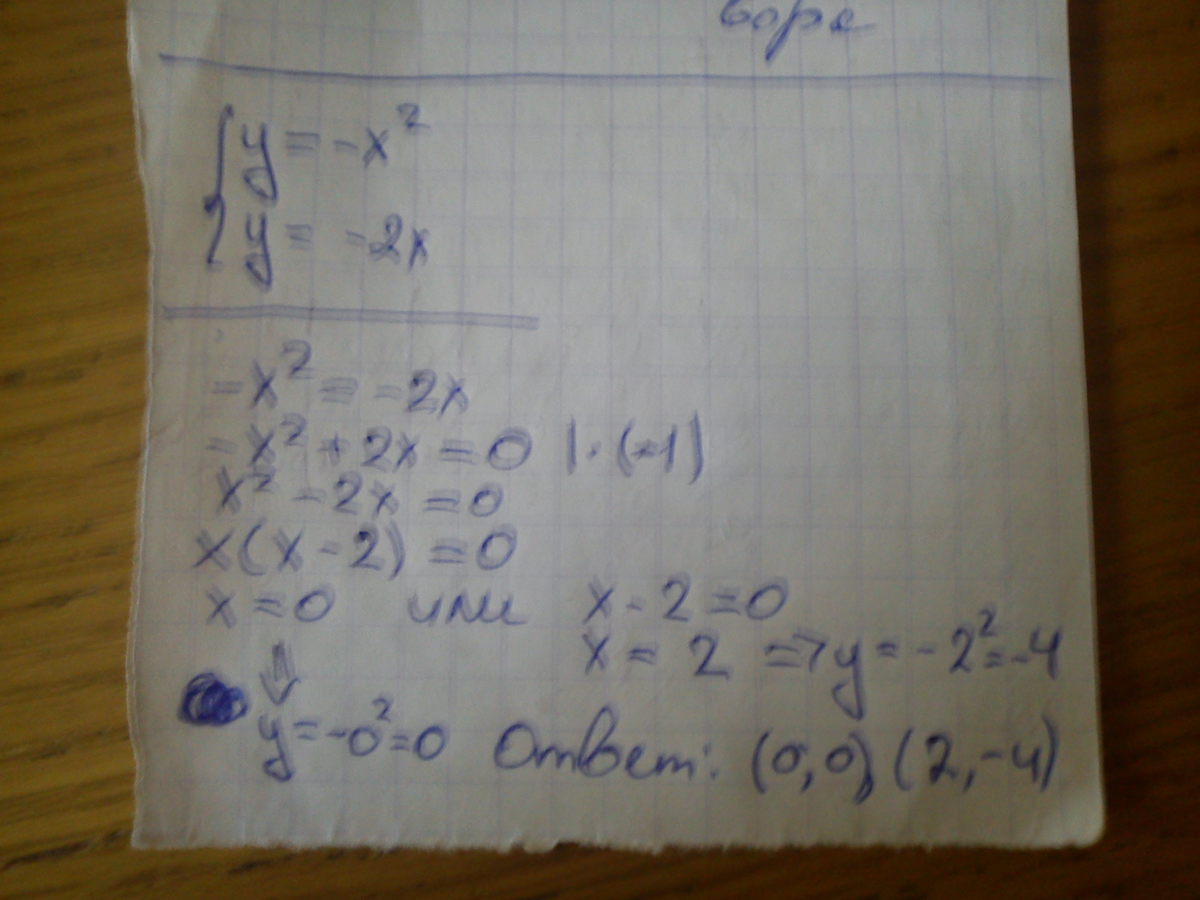 { y = -x²
y = -2x
-x² = -2x
-x² + 2x = 0 | · (-1)
x² - 2x = 0
x(x - 2) = 0
x = 0 или x - 2 = 0
x = 2 => y = -2² = -4
⇓
y = -0² = 0 Ответ: (0,0) (2,-4)